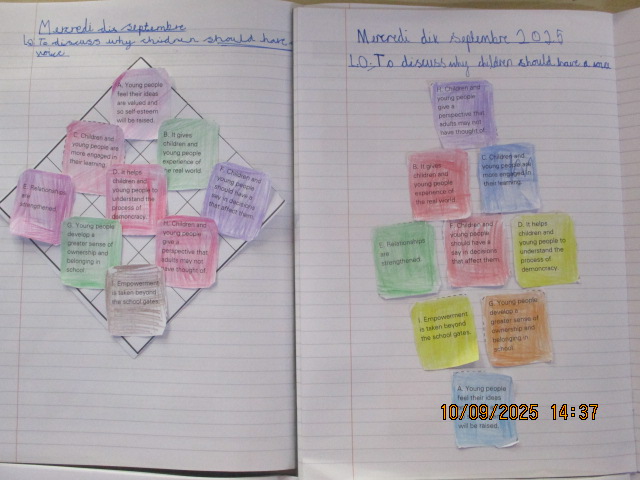 Mercredi dix septembre
LO: To discuss why children should have
voice
A. Young people
feel their ideas
are valued and
so self-esteem
will be raised.
C. Children and
young people are
more engaged in
their learning.
B. It gives
children and
young people
experience of
the real world.
E. Relationships
are
strengthened.
D. It helps
children and
young people to
understand the
process of
democracy.
F. Children and
young people
should have a
say in decisions
that affect them.
G. Young people
develop a
greater sense of
ownership and
belonging in
school.
H. Children and
young people
give a
perspective that
adults may not
have thought of.
I. Empowerment
is taken beyond
the school gates.
Mercredi dix septembre 2025
LO: To discuss why children should have a voice
H. Children and
young people
give a
perspective that
adults may not
have thought of.
B. It gives
children and
young people
experience of
the real world.
C. Children and
young people are
more engaged in
their learning.
E. Relationships
are
strengthened.
F. Children and
young people
should have a
say in decisions
that affect them.
D. It helps
children and
young people to
understand the
process of
democracy.
I. Empowerment
is taken beyond
the school gates.
G. Young people
develop a
greater sense of
ownership and
belonging in
school.
A. Young people
feel their ideas
will be raised.
10/09/2025 14:37